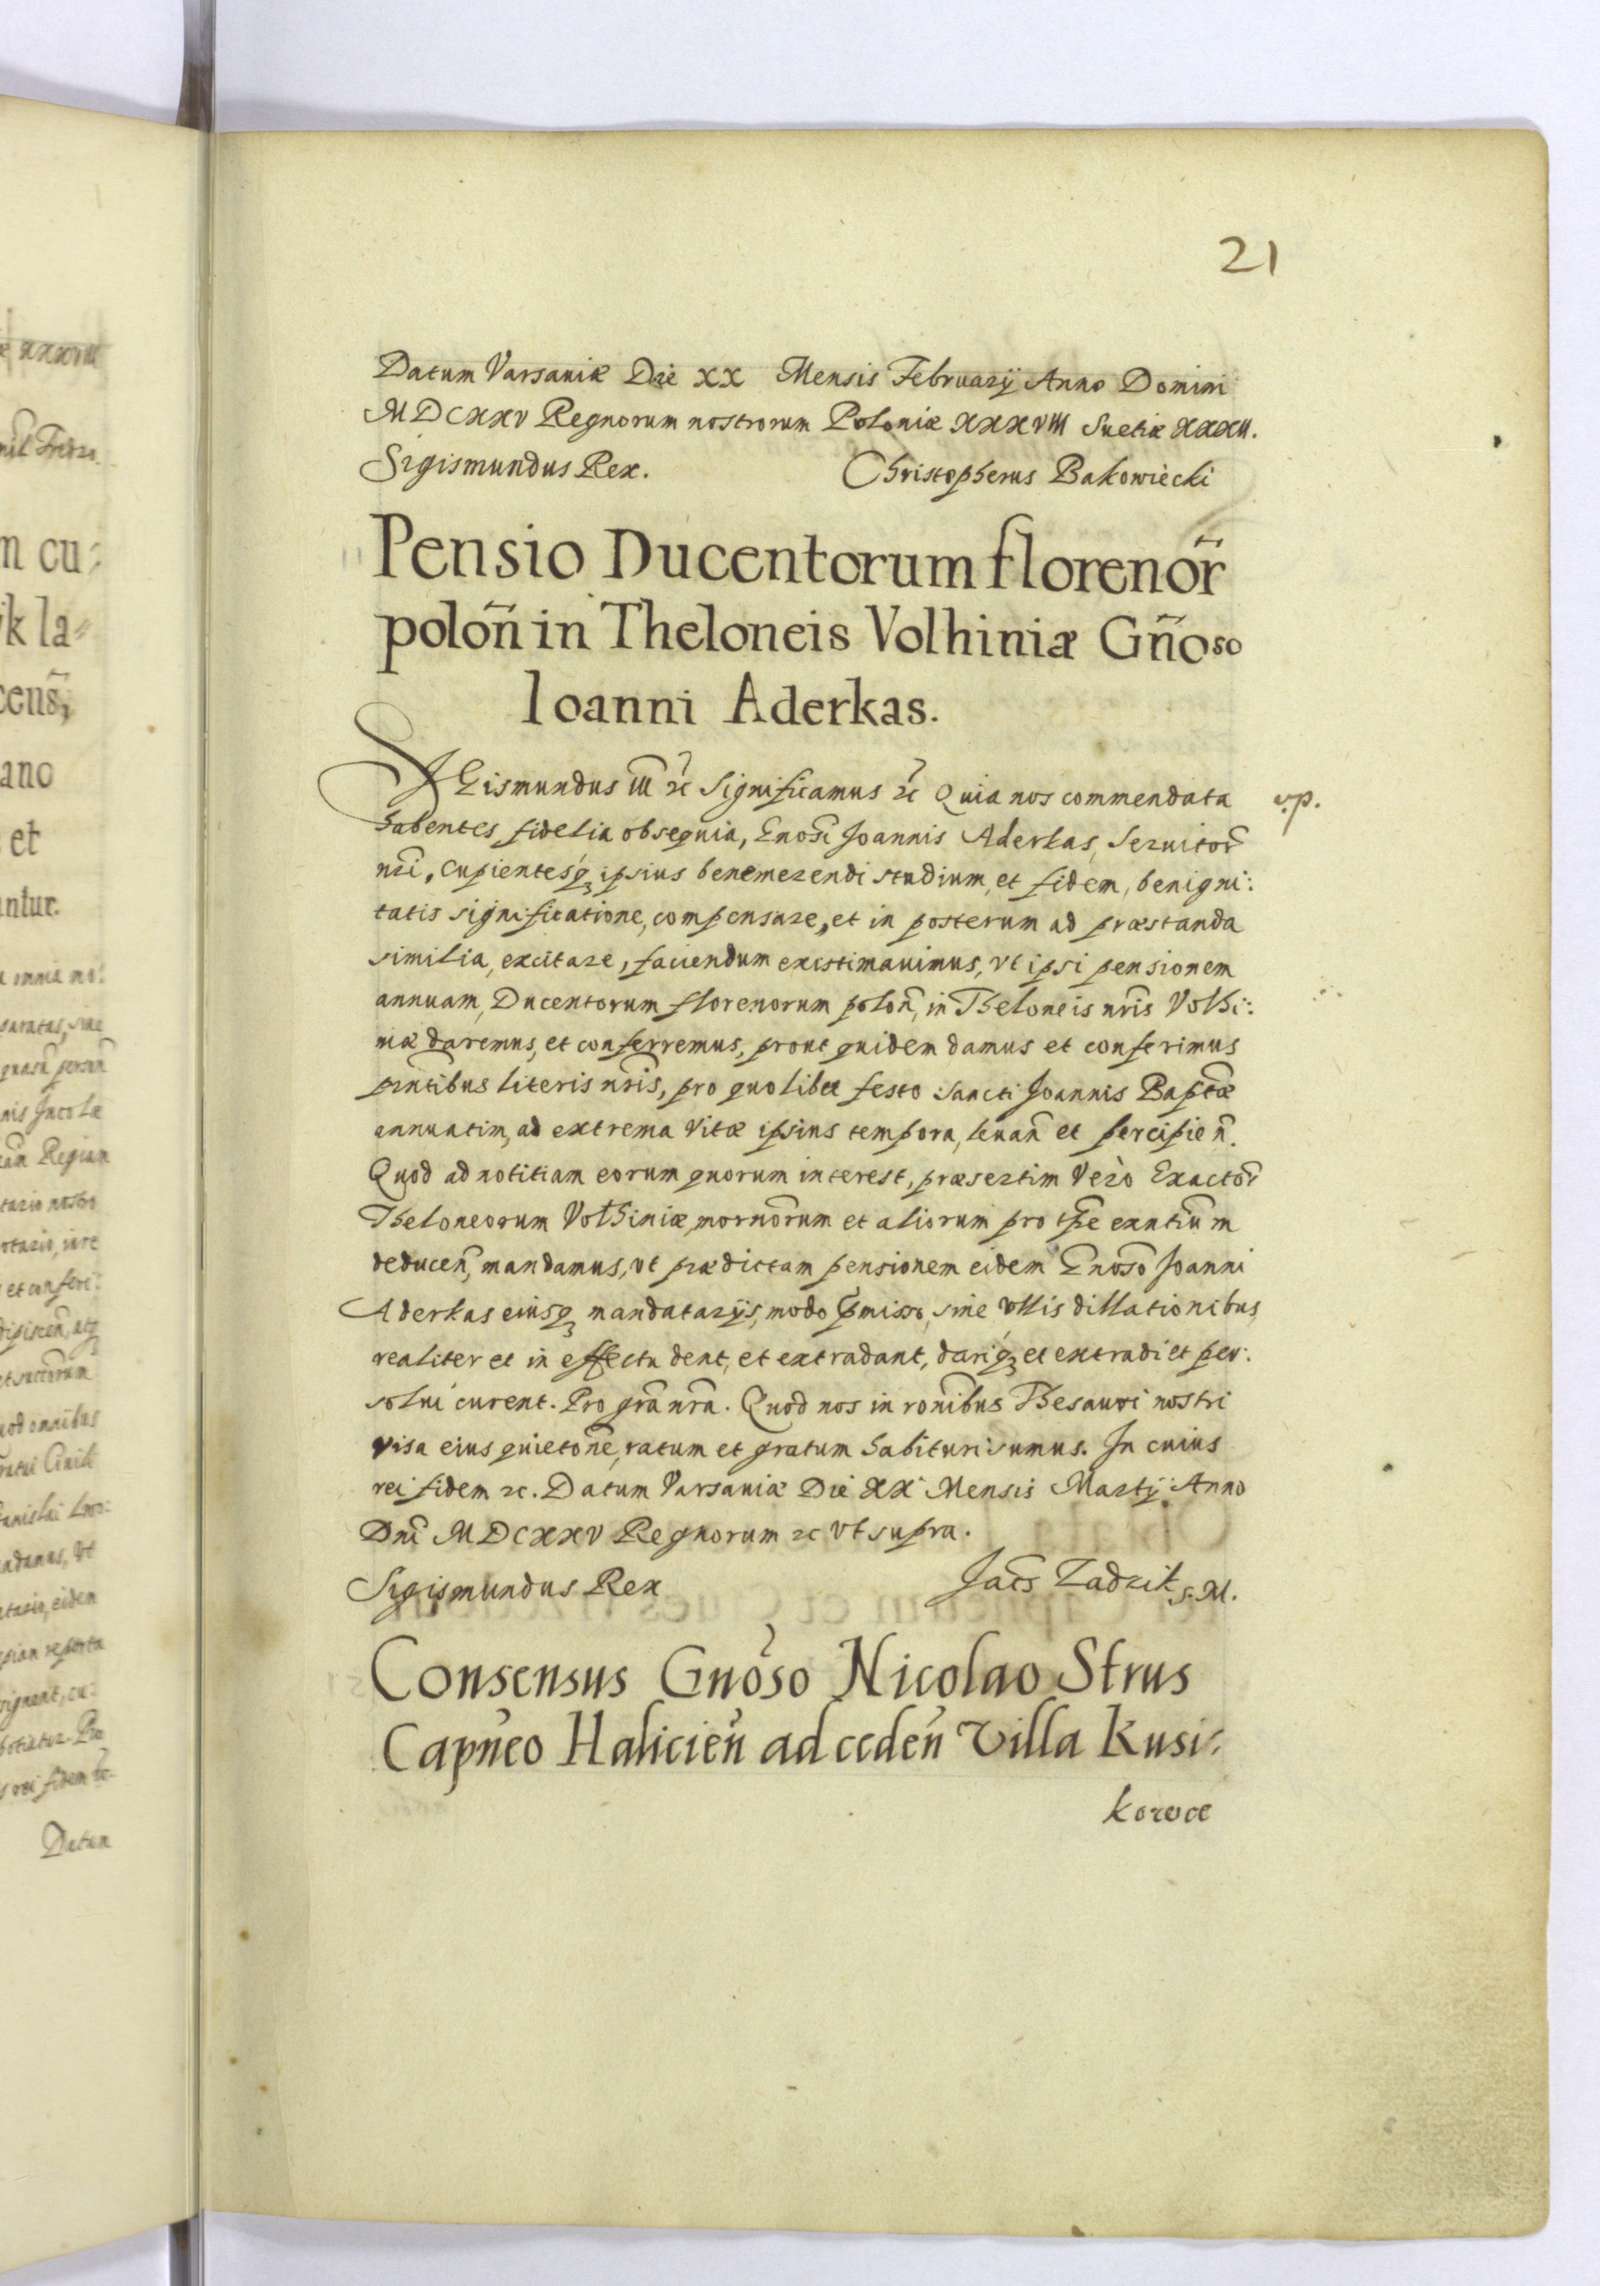 21
Datum Varsaviæ Die XX Mensis Februarij Anno Domini
MDCXXV Regnorum nostrorum Poloniæ XXXVIII Suetiæ XXXII.
Sigismundus Rex. Christopherus Bakowiecki
Pensio Ducentorum florenor̃
polon̄ in Theloneis Volhiniæ Gn̄oso
Ioanni Aderkas.
SIGismundus III ꝛc Significamus ꝛc Quia nos commendata
v.p.
habentes fidelia obsequia, Gnosi Joannis Aderkas, Servitor̃
nri, Cupientesq́ꝫ ipsius benemerendi studium, et fidem, benigni:
tatis significatione, compensare, et in posterum ad præstanda
similia, excitare, faciendum existimavimus, vt ipsi pensionem
annuam, Ducentorum florenorum polon̄, in Theloneis nr̃is Volhi:
niæ daremus, et conferremus, prout quidem damus et conferimus
pr̃ntibus literis nr̃is, pro quolibet festo Sancti Joannis Bapt̃æ
annuatim, ad extrema vitæ ipsius tempora, levan̄ et percipien̄.
Quod ad notitiam eorum quorum interest, præsertim Verò Exactor̃
Theloneorum Volhiniæ, mornor̃um et aliorum pro tp̃e exn̄tium
deducen̄, mandamus, vt prædictam pensionem eidem Gnoso Joanni
Aderkas eiusqꝫ mandatarijs, modo p̃misso, sine vllis dillationibus,
realiter et in effectu dent, et extradant, dariq́ꝫ et extradi et per:
solui curent. Pro gr̃a nr̃a. Quod nos in ron̄ibus Thesauri nostri
visa eius quieton̄e, ratum et gratum habituri sumus. In cuius
rei fidem ꝛc. Datum Varsaviæ Die XX Mensis Martij Anno
Dn̄i MDCXXV Regnorum ꝛc vt supra.
Sigismundus Rex Jac̃s Zadzik S.M.
Consensus Gnoso Nicolao Strus
Capn̄eo Halicien̄ ad ceden̄ Villa Kusi:
korvce